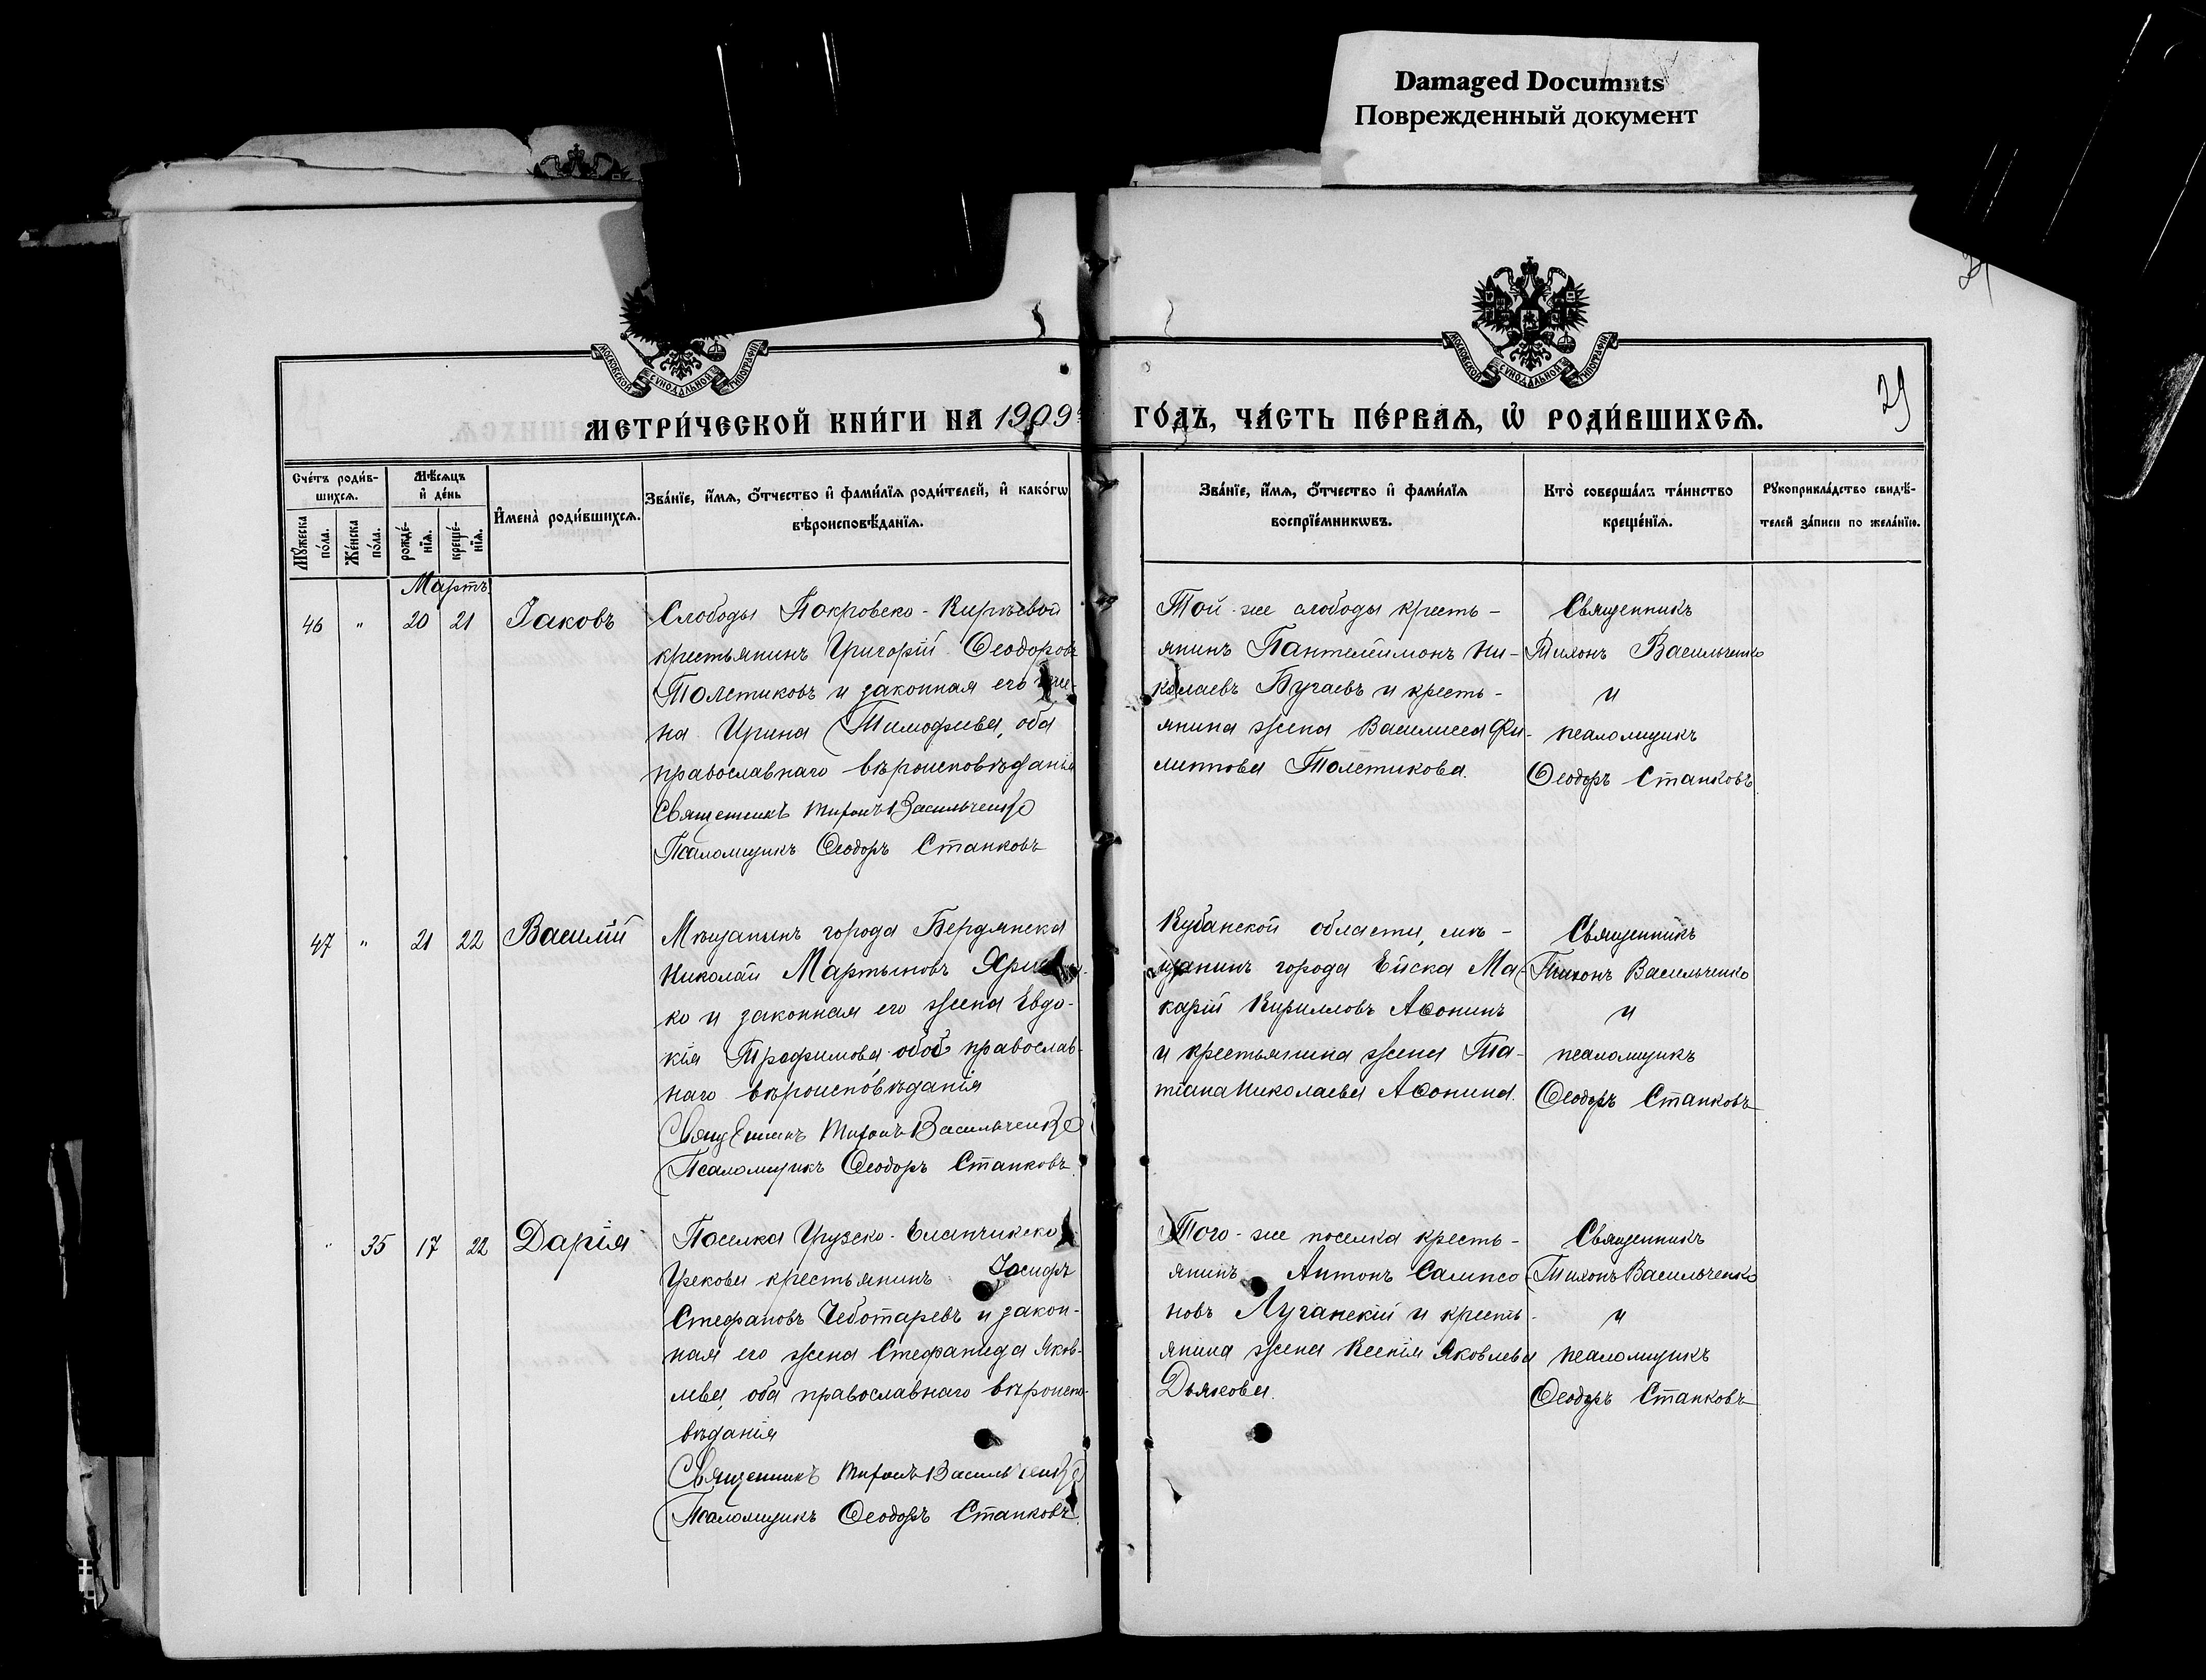 Damaged Documnts
Поврежденный документ
МОСКОВСКОЙ СѴНОДАЛЬНОЙ ТИПОГРАФІИ
МОСКОВСКОЙ СѴНОДАЛЬНОЙ ТИПОГРАФІИ
29
МЕТРИ́ЧЕСКОЙ КНИ́ГИ НА 1909й
ГО́ДЪ, ЧА́СТЬ ПЕ́РВАѦ, Ѡ҆ РОДИ́ВШИХСѦ.
Сче́тъ роди́в-
шихсѧ.
Мѣ́сѧцъ
и҆ де́нь
И҆мена̀ роди́вшихсѧ.
Зва́нїе, и҆́мѧ, ѻ҆́тчество и҆ фами́лїѧ роди́телей, и҆ како́гѡ
вѣроисповѣ́данїѧ.
Мꙋ́жеска
по́ла.
Же́нска
по́ла.
рожде́-
нїѧ.
креще́-
нїѧ.
Зва́нїе, и҆́мѧ, ѻ҆́тчество и҆ фами́лїѧ
воспрїе́мникѡвъ.
Кто̀ соверша́лъ та́инство
креще́нїѧ.
Рꙋкоприкла́дство свидѣ́-
телей за́писи по жела́нїю.
Мартъ
46 " 20 21 Іаковъ
Слободы Покровско-Кирѣевой
крестьянинъ Григорій Ѳеодоровъ
Толстиковъ и законная его же-
на Ирина Тимофѣева, оба
православнаго вѣроисповѣданія
Священникъ Тихонъ Васильченко
Псаломщикъ Ѳеодоръ Станковъ
Той-же слободы кресть-
янинъ Пантелеимонъ Ни-
колаевъ Бугаевъ и кресть-
янина жена Василисса Фи-
липпова Толстикова.
Священникъ
Тихонъ Васильченко
и
псаломщикъ
Ѳеодоръ Станковъ
47 " 21 22 Василій
Мѣщанинъ города Бердянска
Николай Мартыновъ
ко и законная его жена Евдо-
кія Трофимова обоє православ-
наго вѣроисповѣданія
Священникъ Тихонъ Васильченко
Псаломщикъ Ѳеодоръ Станковъ
Кубанской области, мѣ-
щанинъ города Ейска Ма-
карій Кирилловъ Аѳонинъ
и крестьянина жена Та-
тіана Николаева Аѳонина.
Священникъ
Тихонъ Васильченко
и
псаломщикъ
Ѳеодоръ Станковъ
" 35 17 22 Дарія
Поселка Грузско-Еланчикско
крестьянинъ Іосифъ
Стефановъ Чеботаревъ и закон-
ная его жена Стефанида Яков-
лева, оба православнаго вѣроиспо-
вѣданія
Священникъ Тихонъ Васильченко
Псаломщикъ Ѳеодоръ Станковъ.
Того-же поселка кресть-
янинъ Антонъ Сампсо
новъ Луганскій и кресть-
янина жена Ксенія Яковлева
Дьякова.
Священникъ
Тихонъ Васильченко
и
псаломщикъ
Ѳеодоръ Станковъ